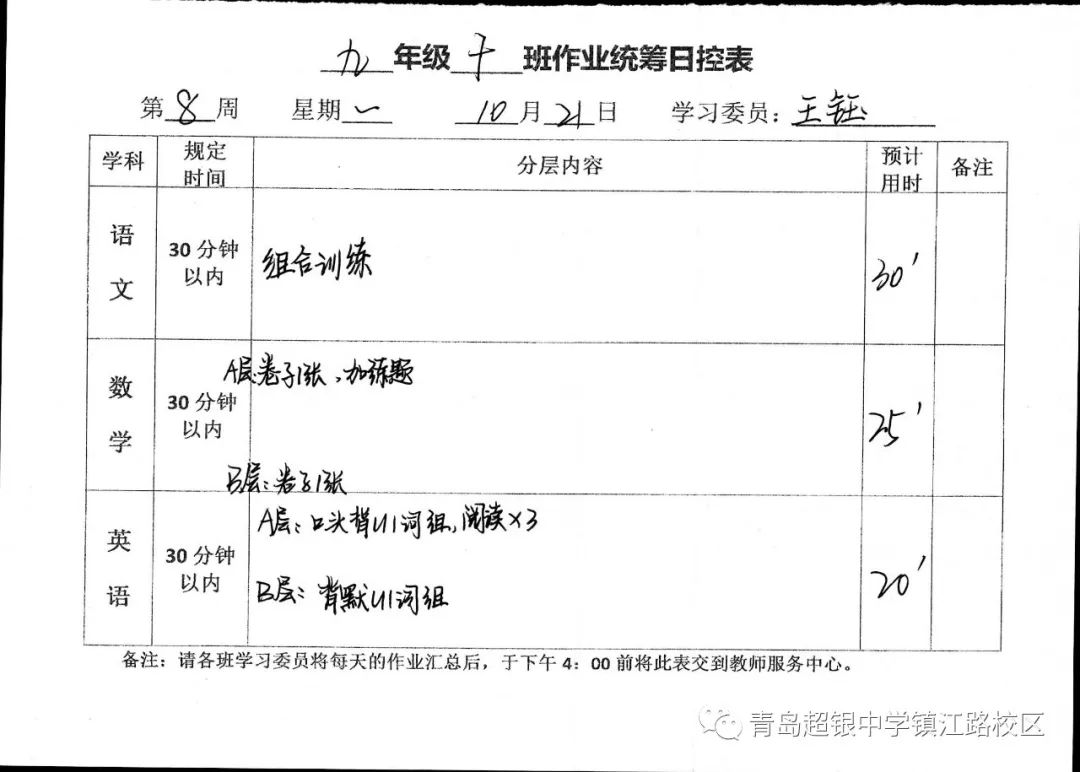 九 年级 十 班作业统筹日控表
第 8 周 星期 一 10 月 21 日 学习委员：王钰
学科 规定时间 分层内容 预计用时 备注
语文 30分钟以内 组合训练 30'
数学 30分钟以内 A层:卷子1张，加练题 25'
B层：卷子1张
英语 30分钟以内 A层：口头背U1词组，阅读×3 20'
B层：背默U1词组
备注：请各班学习委员将每天的作业汇总后，于下午 4：00 前将此表交到教师服务中心。
青岛超银中学镇江路校区